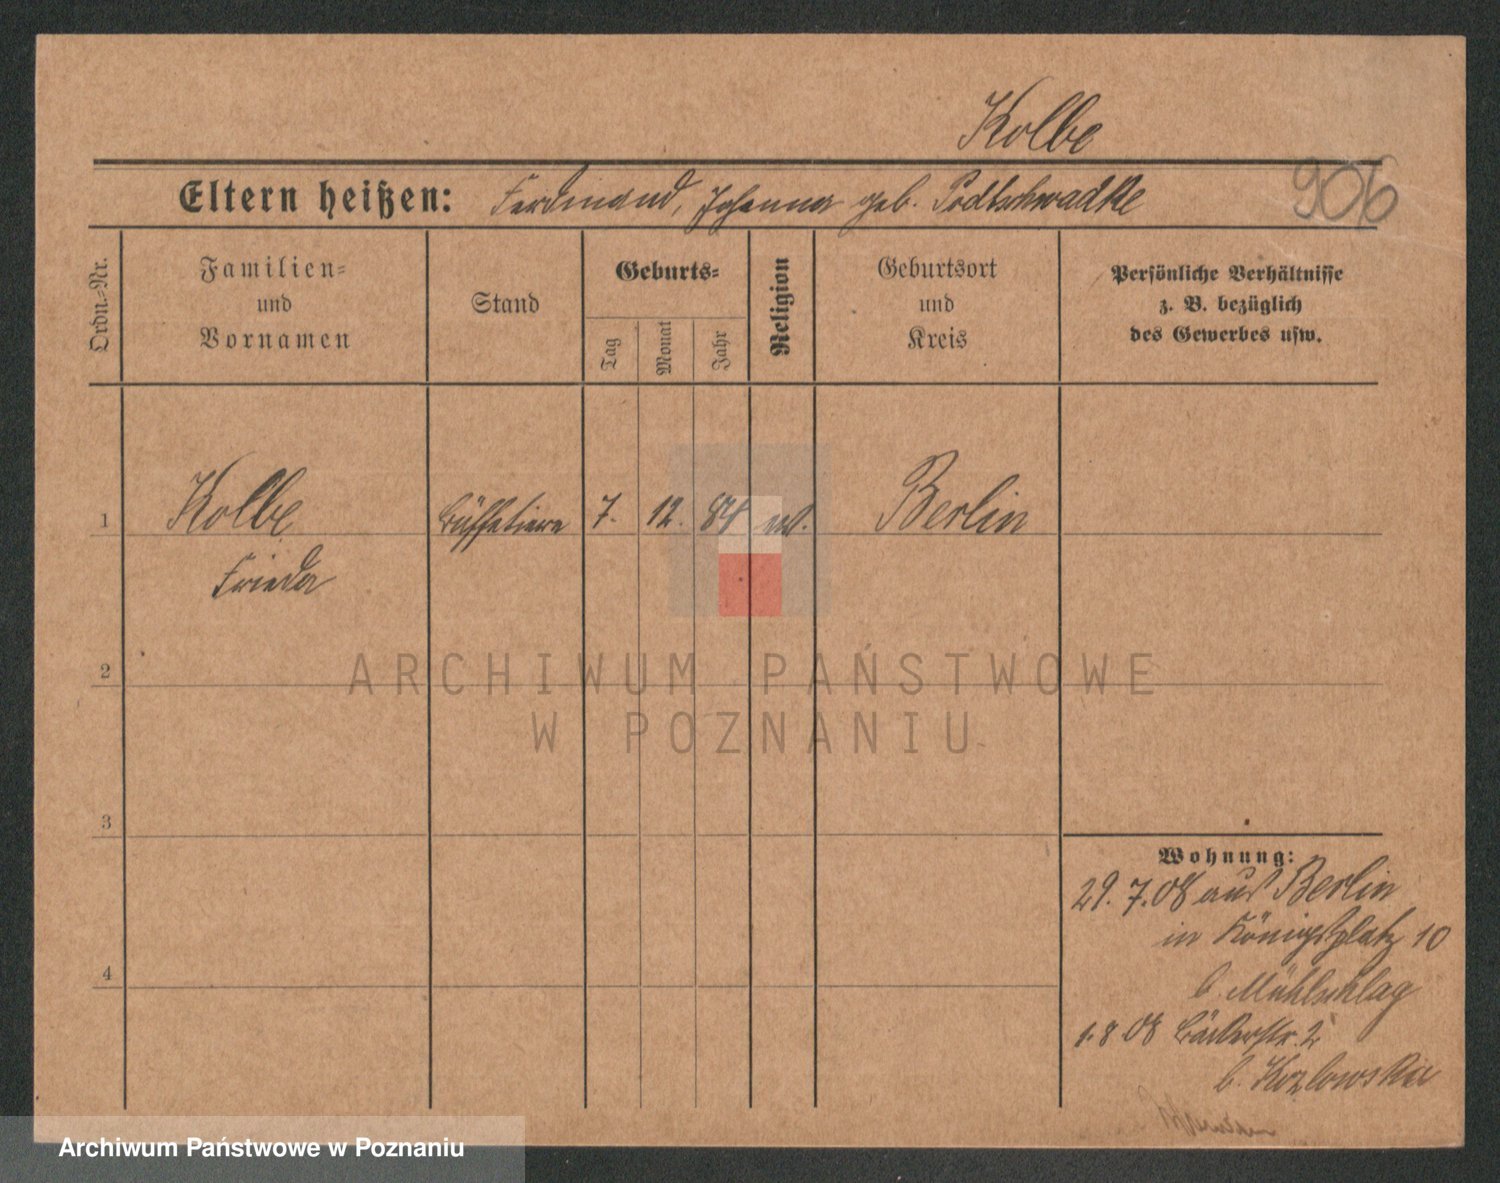 Kolbe
906
Eltern heißen: Ferdinand, Johanna geb.
Ordn.=Nr.
Familien=
und
Vornamen
Stand
Geburts=
Tag
Monat
Jahr
Religion
Geburtsort
und
Kreis
Persönliche Verhältnisse
z. B. bezüglich
des Gewerbes usw.
1
Kolbe
Büffetiere
7.
12.
84
Berlin
Frieda
2
ARCHIWUM PAŃSTWOWE
W POZNANIU
3
Wohnung:
29. 7. 08 aus Berlin
in Königsplatz 10
b. Mühlschlag
4
1. 8 08 Bäckerstr. 2
b. Kozlowska
Archiwum Państwowe w Poznaniu